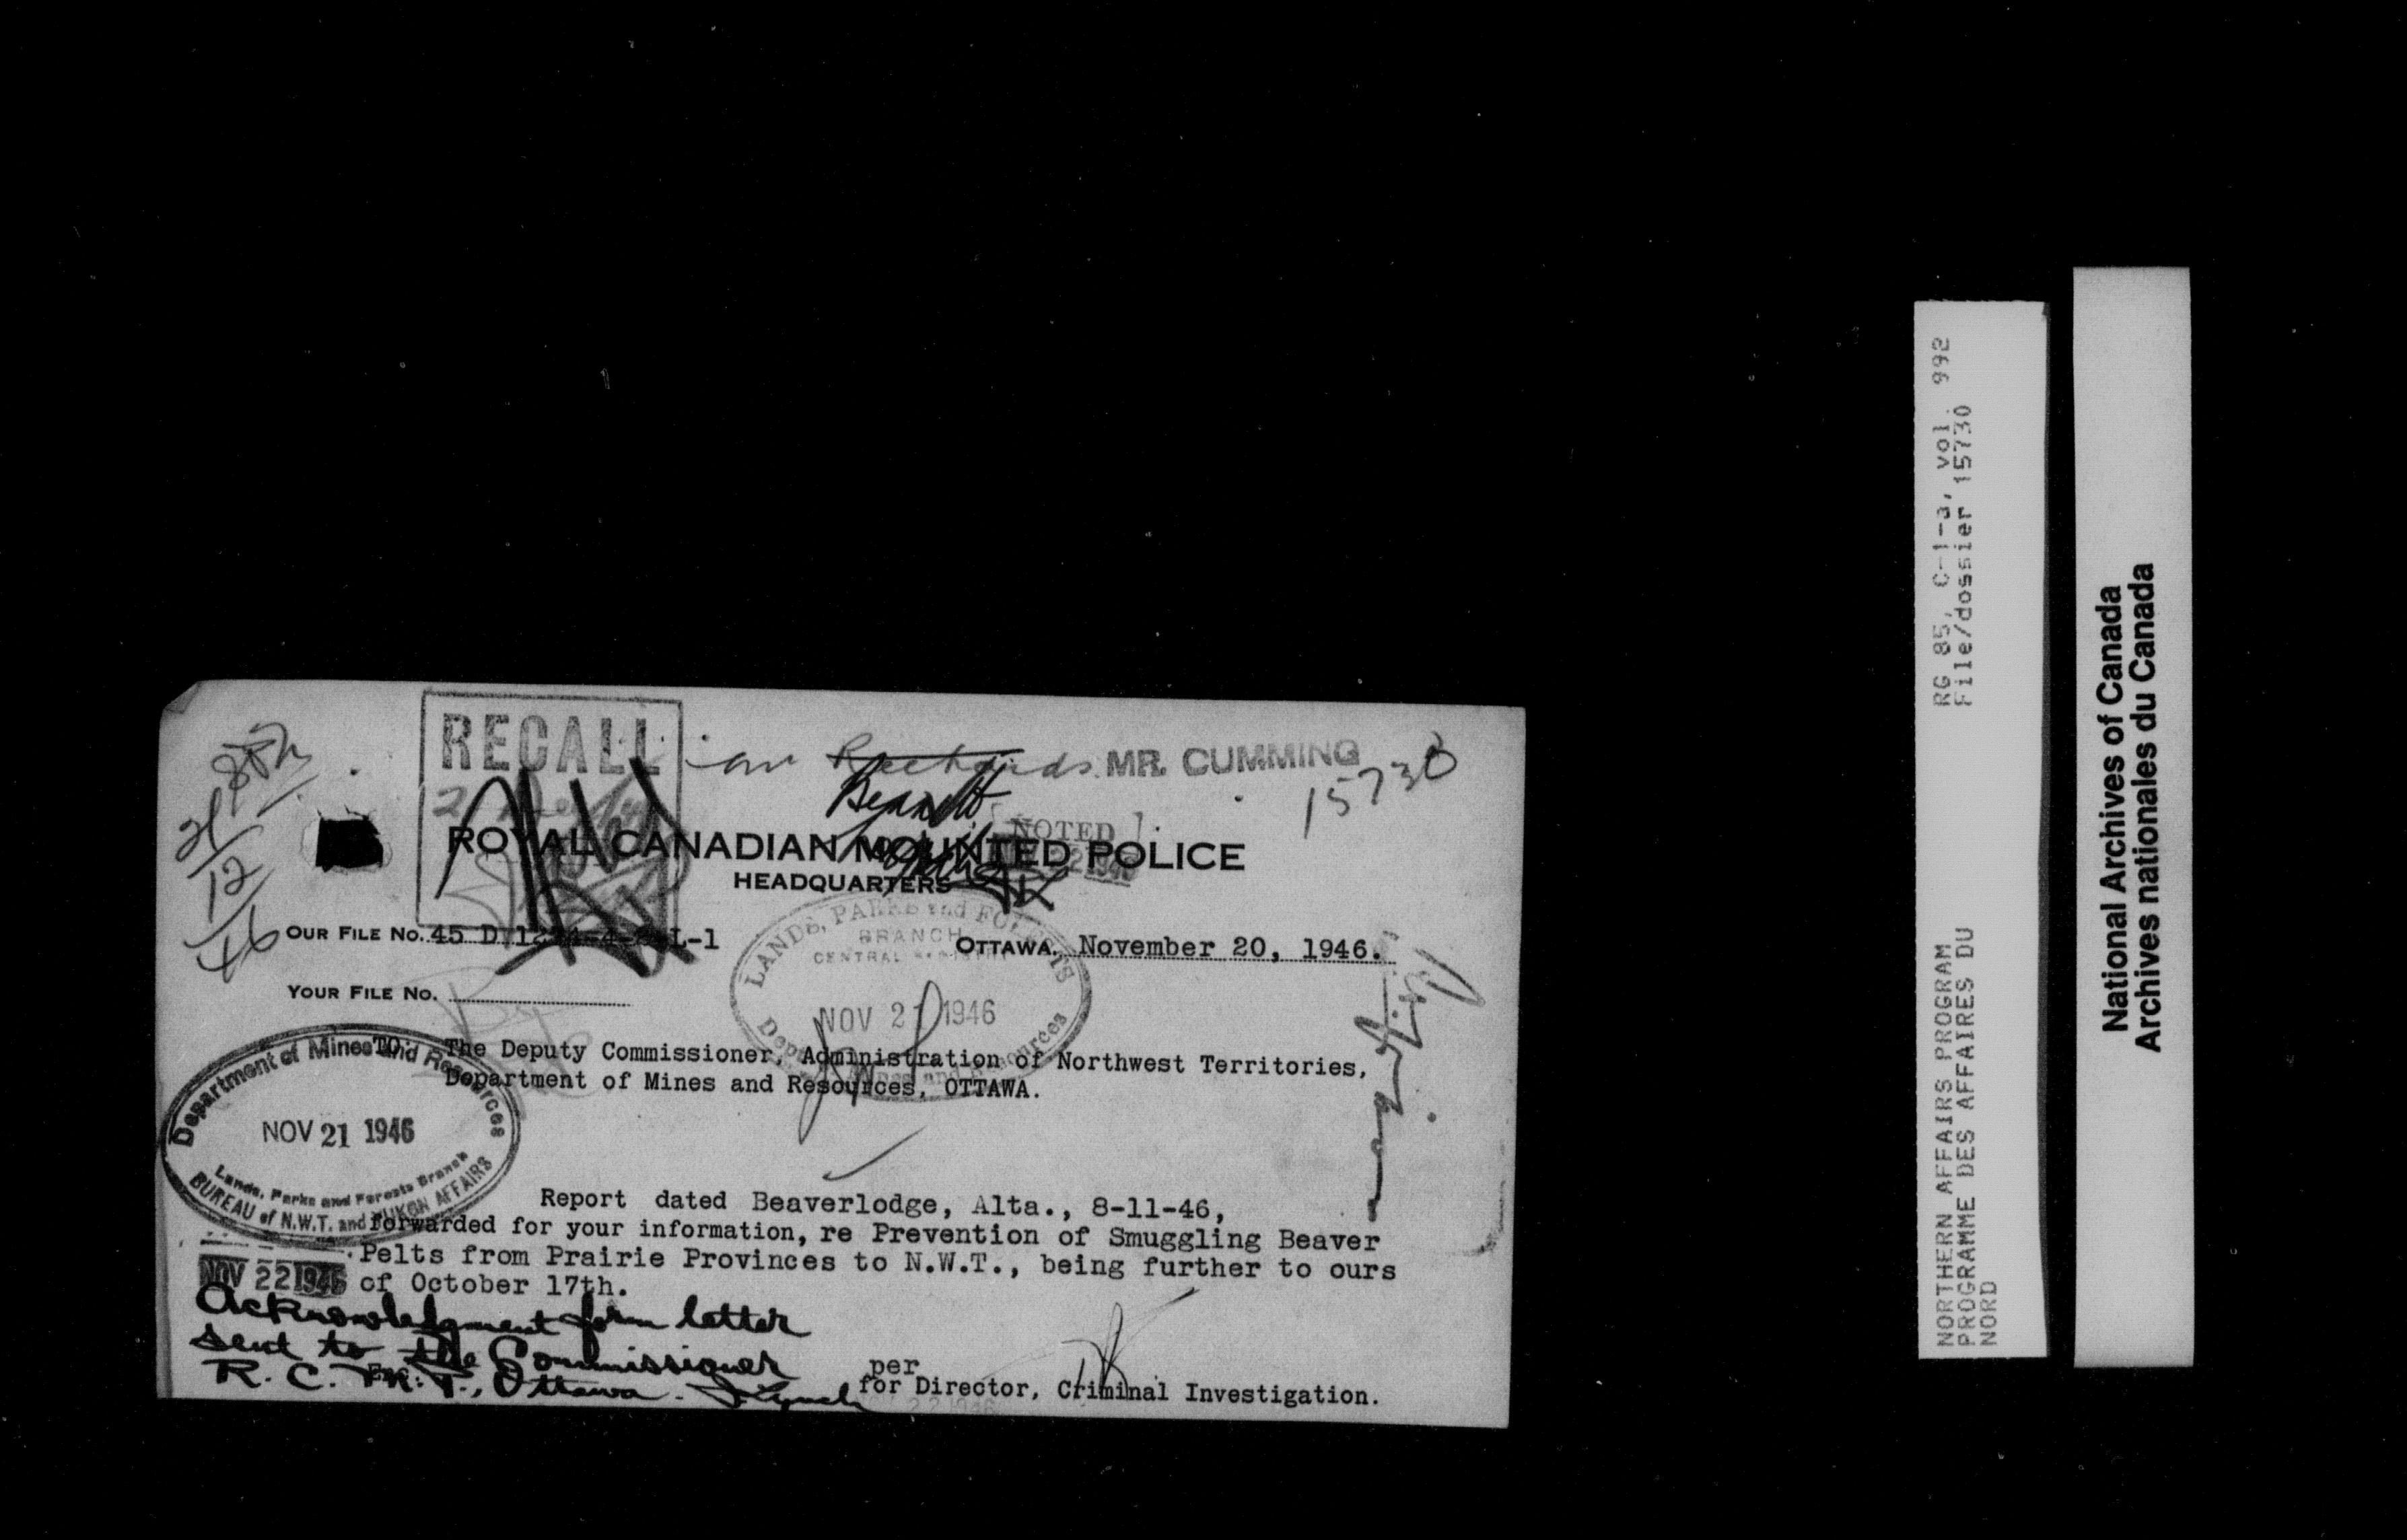 RECALL
MR. CUMMING
15730
Bennett
NOTED
ROYAL CANADIAN MOUNTED POLICE
HEADQUARTERS
21
12
46
OUR FILE No. 45 D
L-1
LANDS, PARKS and FORESTS
BRANCH
CENTRAL
NOV 21 1946
OTTAWA, November 20, 1946.
YOUR FILE No.
TO: The Deputy Commissioner, Administration of Northwest Territories,
Department of Mines and Resources, OTTAWA.
Department of Mines and Resources
NOV 21 1946
Lands, Parks and Forests Branch
BUREAU of N.W.T. and YUKON AFFAIRS
Report dated Beaverlodge, Alta., 8-11-46,
forwarded for your information, re Prevention of Smuggling Beaver
Pelts from Prairie Provinces to N.W.T., being further to ours
of October 17th.
NOV 22 1946
Acknowledgment form letter
sent to the Commissioner
R. C. M. P., Ottawa. Lynch
per
for Director, Criminal Investigation.
RG 85, C-1-a, vol. 992
File/dossier 15730
NORTHERN AFFAIRS PROGRAM
PROGRAMME DES AFFAIRES DU
NORD
National Archives of Canada
Archives nationales du Canada